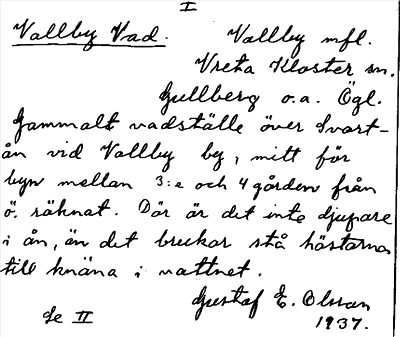 I
Vallby Vad. Vallby mfl.
Vreta Kloster sn.
Gullberg o.a. Ögl.
Gammalt vadställe över Svart-
ån vid Vallby by, mitt för
byn mellan 3:e och 4 gården från
ö. räknat. Där är det inte djupare
i ån, än det brukar stå hästarna
till knäna i vattnet.
Gustaf E. Olsson
Se II 1937.